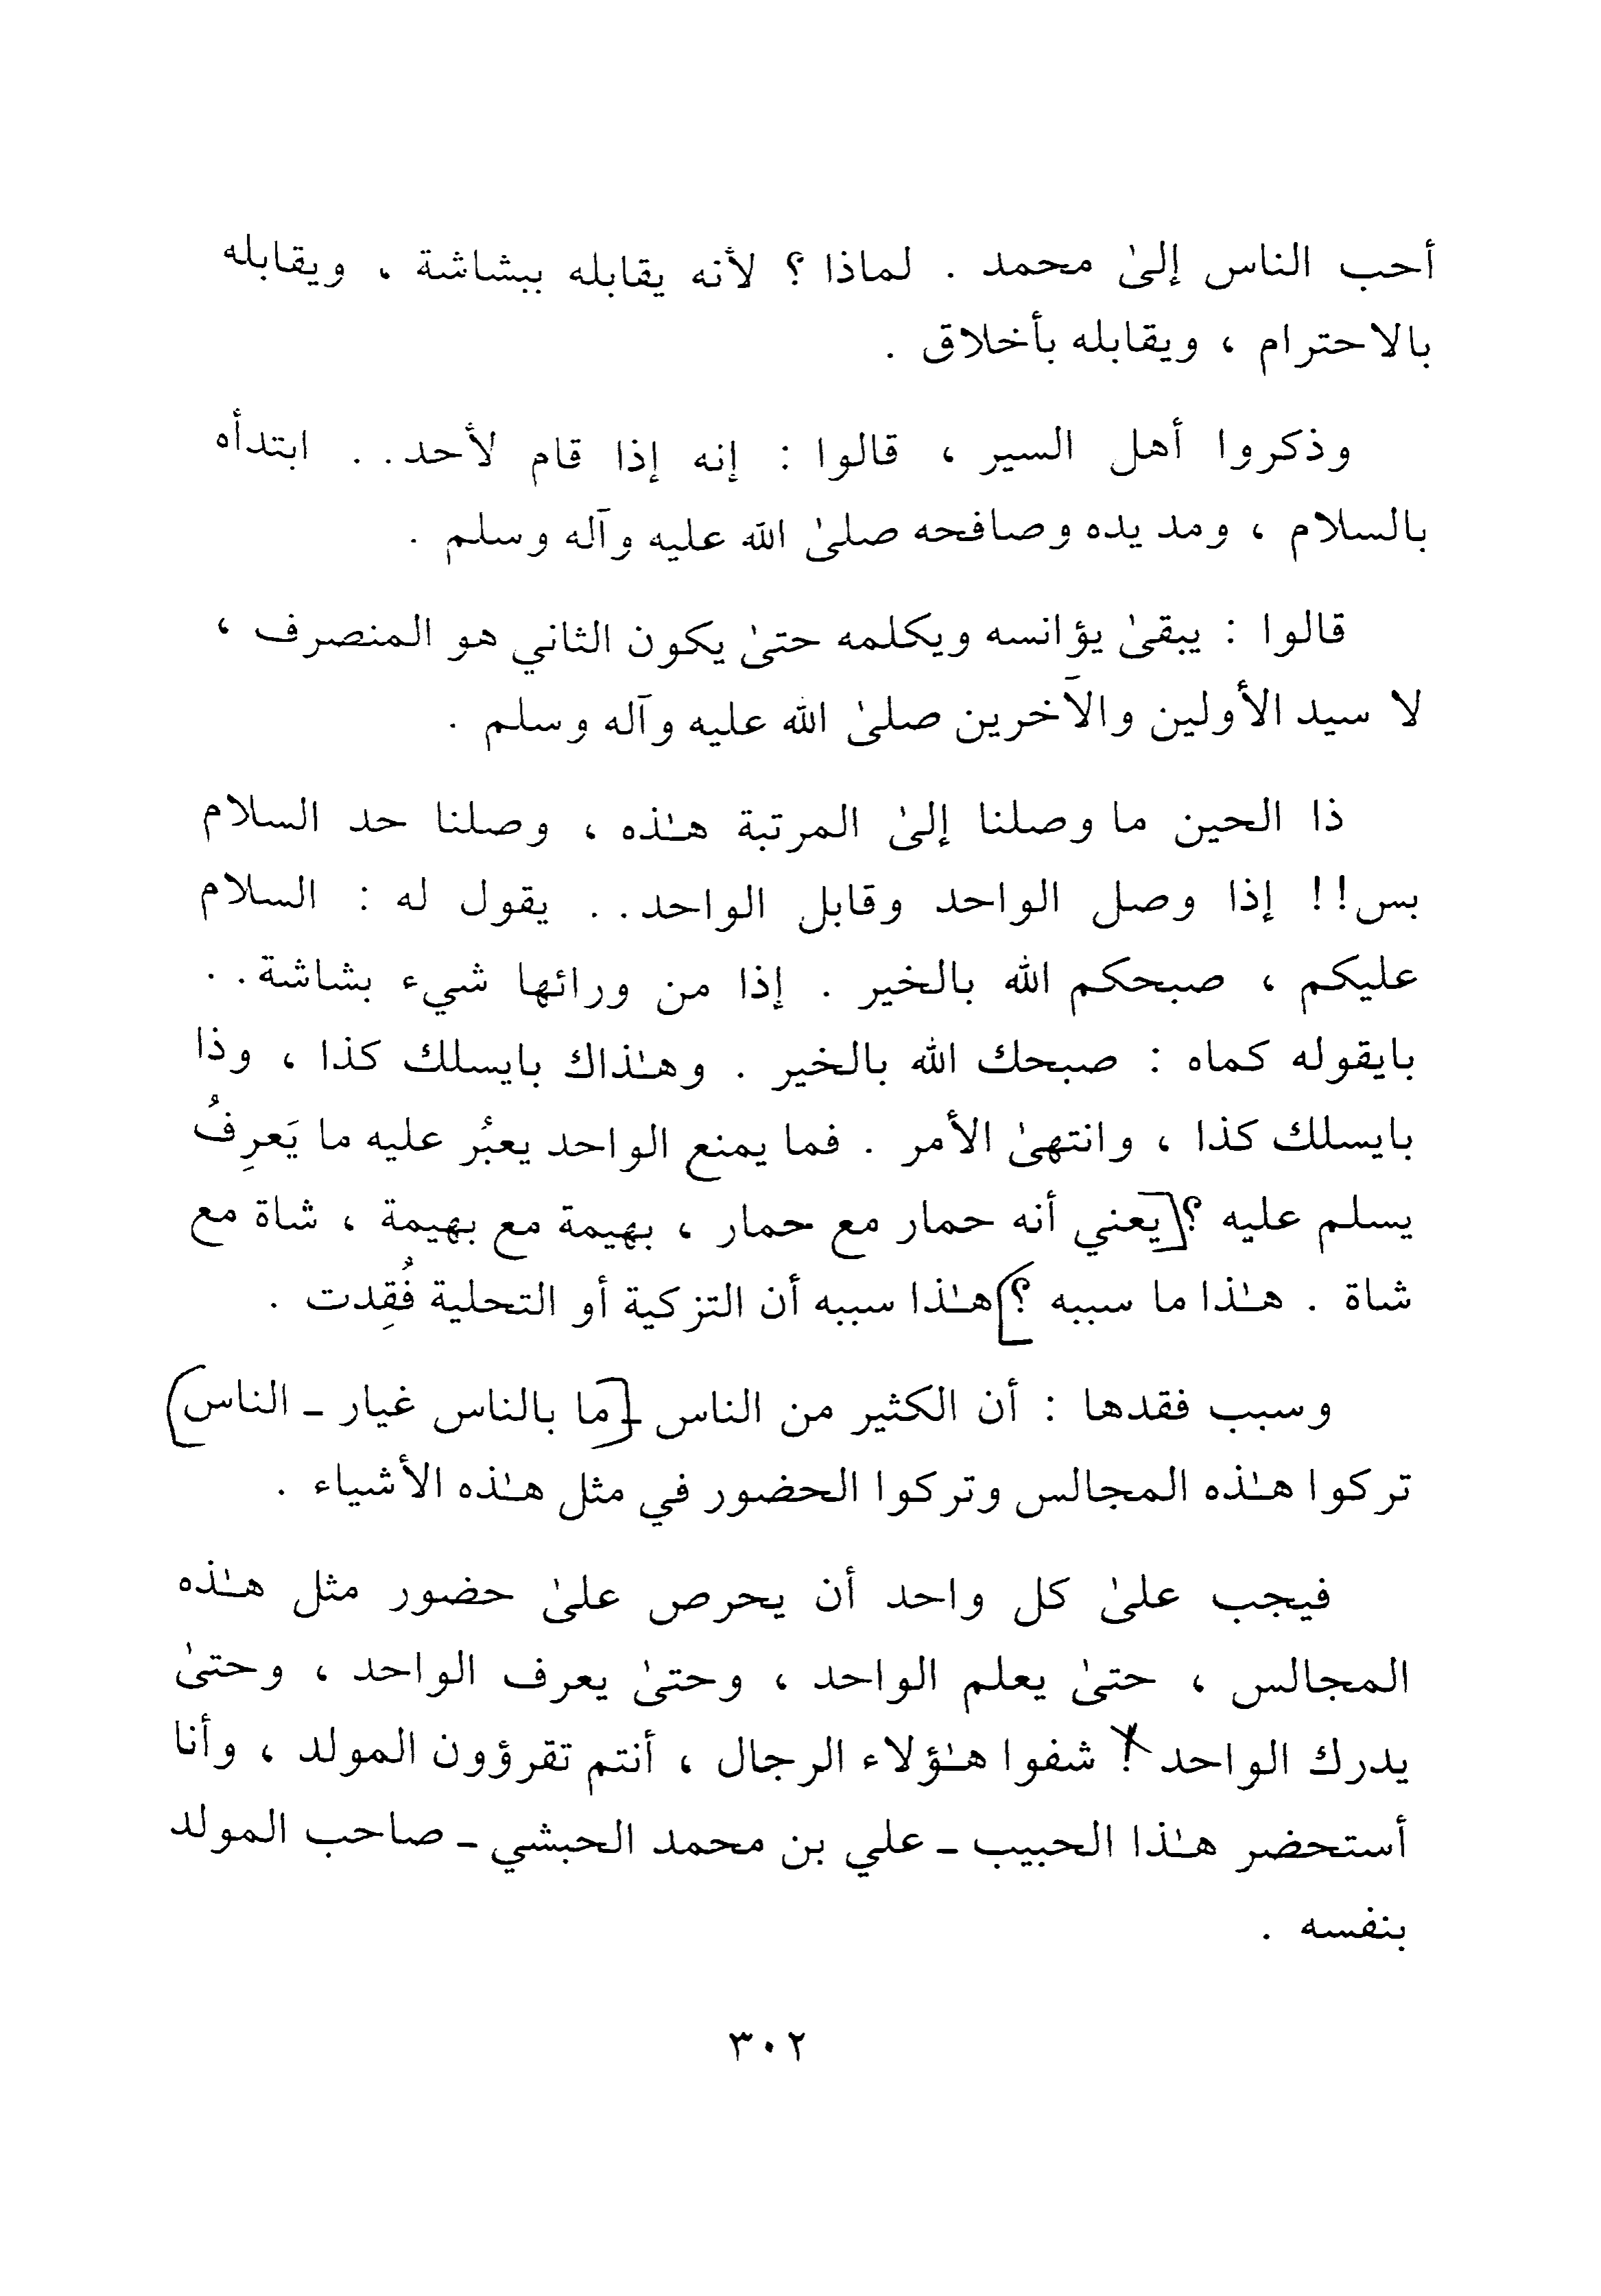 أحب الناس إلىٰ محمد . لماذا ؟ لأنه يقابله ببشاشة ، ويقابله
بالاحترام ، ويقابله بأخلاق .
وذكروا أهل السير ، قالوا : إنه إذا قام لأحد. . ابتدأه
بالسلام ، ومد يده وصافحه صلىٰ الله عليه وآله وسلم .
قالوا : يبقىٰ يؤانسه ويكلمه حتىٰ يكون الثاني هو المنصرف ،
لا سيد الأولين والآخرين صلىٰ الله عليه وآله وسلم .
ذا الحين ما وصلنا إلىٰ المرتبة هـٰذه ، وصلنا حد السلام
بس!! إذا وصل الواحد وقابل الواحد. . يقول له : السلام
عليكم ، صبحكم الله بالخير . إذا من ورائها شيء بشاشة. .
بايقوله كماه : صبحك الله بالخير . وهـٰذاك بايسلك كذا ، وذا
بايسلك كذا ، وانتهىٰ الأمر . فما يمنع الواحد يعبُر عليه ما يَعرِفُ
يسلم عليه ؟ [يعني أنه حمار مع حمار ، بهيمة مع بهيمة ، شاة مع
شاة . هـٰذا ما سببه ؟] هـٰذا سببه أن التزكية أو التحلية فُقِدت .
وسبب فقدها : أن الكثير من الناس ـ [ما بالناس غيار ـ الناس]
تركوا هـٰذه المجالس وتركوا الحضور في مثل هـٰذه الأشياء .
فيجب علىٰ كل واحد أن يحرص علىٰ حضور مثل هـٰذه
المجالس ، حتىٰ يعلم الواحد ، وحتىٰ يعرف الواحد ، وحتىٰ
يدرك الواحد ! شفوا هـٰؤلاء الرجال ، أنتم تقرؤون المولد ، وأنا
أستحضر هـٰذا الحبيب ـ علي بن محمد الحبشي ـ صاحب المولد
بنفسه .
٣٠٢